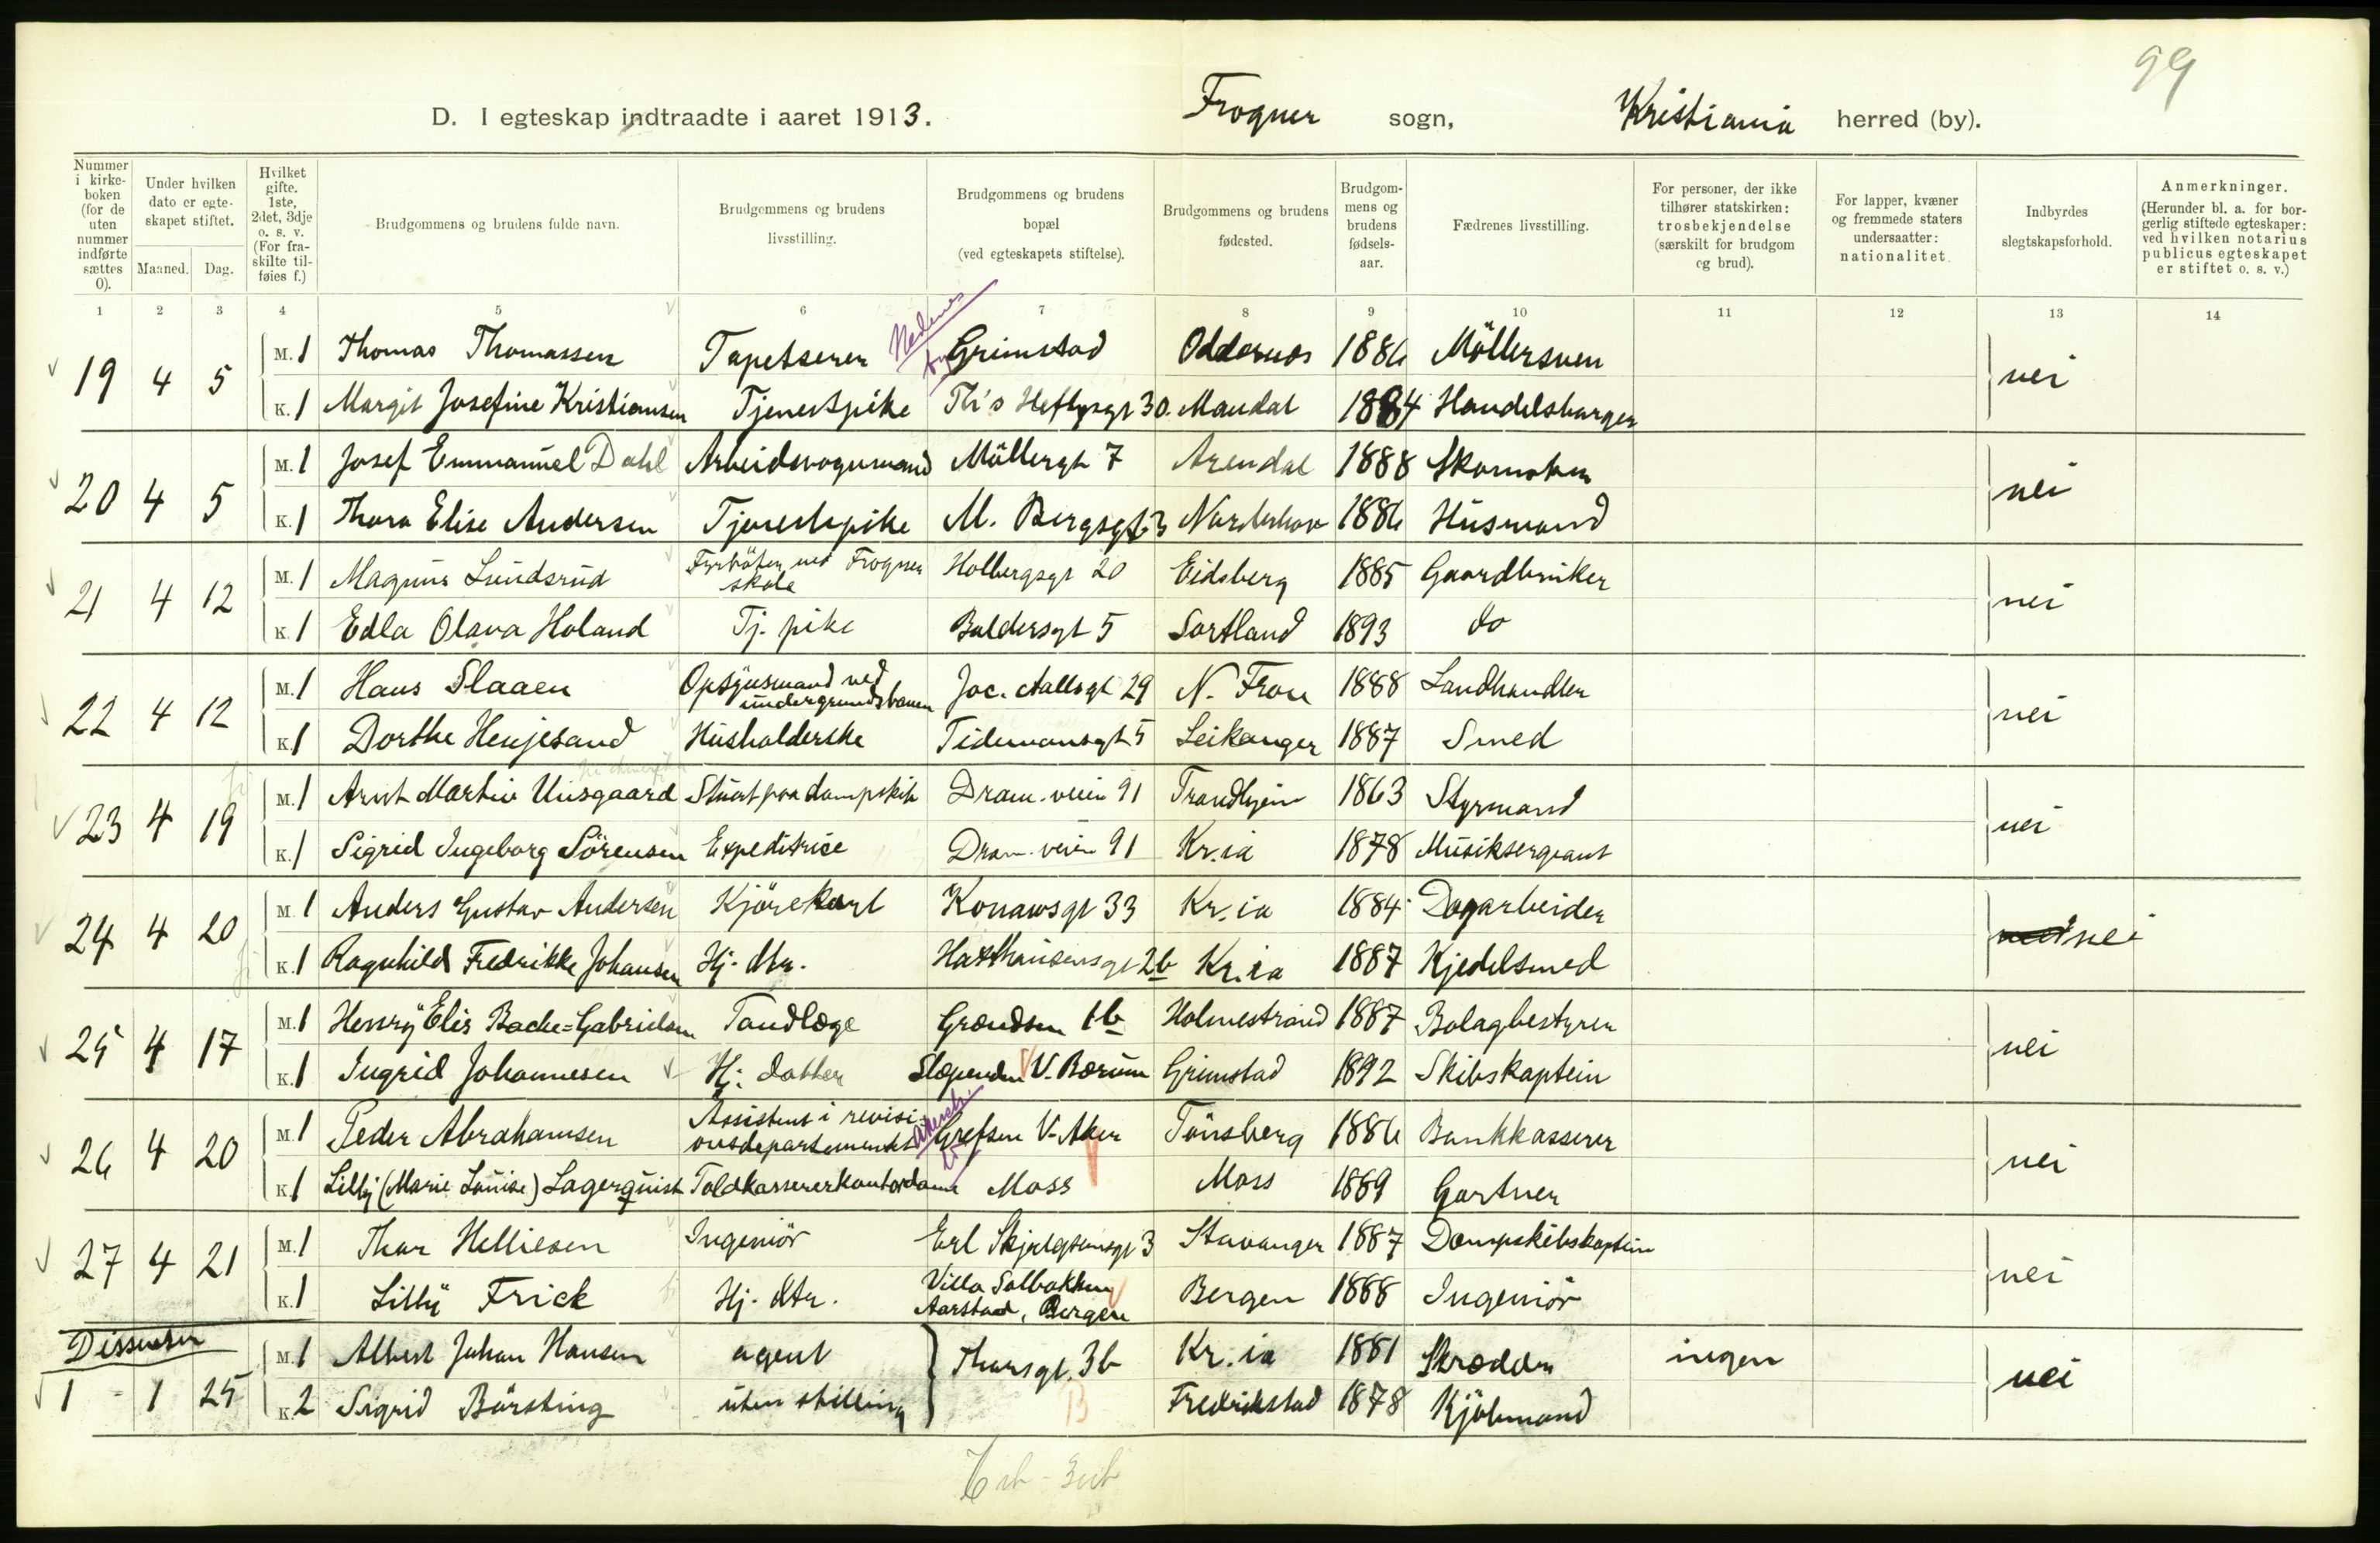 99
D. I egteskap indtraadte i aaret 1913. Frogner sogn, Kristiania herred (by).
Nummer i kirkeboken (for de uten nummer indførte sættes 0). Under hvilken dato er egteskapet stiftet. Maaned. Dag. Hvilket gifte. 1ste, 2det, 3dje o. s. v. (For fraskilte tilføies f.) Brudgommens og brudens fulde navn. Brudgommens og brudens livsstilling. Brudgommens og brudens bopæl (ved egteskapets stiftelse). Brudgommens og brudens fødested. Brudgommens og brudens fødselsaar. Fædrenes livsstilling. For personer, der ikke tilhører statskirken: trosbekjendelse (særskilt for brudgom og brud). For lapper, kvæner og fremmede staters undersaatter: nationalitet. Indbyrdes slegtskapsforhold. Anmerkninger. (Herunder bl. a. for borgerlig stiftede egteskaper: ved hvilken notarius publicus egteskapet er stiftet o. s. v.)
1 2 3 4 5 6 7 8 9 10 11 12 13 14
19 4 5 M. 1 Thomas Thomassen Tapetserer Nedenes Grimstad Oddernes 1886 Möllersven nei
K. 1 Margit Josefine Kristiansen Tjenestpike Th's Heftysgt 30. Mandal 1884 Handelsborger
20 4 5 M. 1 Josef Emmanuel Dahl Arbeidsvognmand Möllergt 7 Arendal 1888 Skomaker nei
K. 1 Thora Elise Andersen Tjenestepike M. Bergsgt 3 Norderhov 1886 Husmand
21 4 12 M. 1 Magnus Lundsrud Fyrböter ved Frogner skole Holbergsgt 20 Eidsberg 1885 Gaardbruker nei
K. 1 Edla Olava Holand Tj. pike Baldersgt 5 Sortland 1893 do
22 4 12 M. 1 Hans Slaaen Opsynsmand ved undergrundsbanen Joc. Aallsgt 29 N. Fron 1888 Landhandler nei
K. 1 Dorthe Henjesand Husholderske Tidemansgt 5 Leikanger 1887 Smed
23 4 19 M. 1 Arnt Martin Uusgaard Stuert paa dampskib Dram. veien 91 Trondhjem 1863 Styrmand nei
K. 1 Sigrid Ingeborg Sörensen Expeditrice Dram. veien 91 Kr.ia 1878 Musiksergeant
24 4 20 M. 1 Anders Gustav Andersen Kjörekarl Konowsgt 33 Kr.ia 1884 Dagarbeider nei
K. 1 Ragnhild Fredrikke Johansen Hj. dtr. Haxthausensgt 2b Kr.ia 1887 Kjedelsmed
25 4 17 M. 1 Henry Elis Backe-Gabrielsen Tandlæge Grændsen 1b Holmestrand 1887 Bolagbestyrer nei
K. 1 Ingrid Johannesen Hj. datter Slependen V. Bærum Grimstad 1892 Skibskaptein
26 4 20 M. 1 Peder Abrahamsen Assistent i revisionsdepartementet Akersh. Grefsen V. Aker Tönsberg 1886 Bankkasserer nei
K. 1 Lilly (Marie Louise) Lagerquist Toldkassererkontordame Moss Moss 1889 Gartner
27 4 21 M. 1 Thor Helliesen Ingeniör Erl Skjalgsönsgt 3 Stavanger 1887 Dampskibskaptein nei
K. 1 Lilly Frick Hj. dtr. Villa Solbakken Aarstad, Bergen Bergen 1888 Ingeniör
Dissenter
1 1 25 M. 1 Albert Johan Hansen agent Thorsgt. 3b Kr.ia 1881 Skrædder ingen nei
K. 2 Sigrid Börsting uten stilling B Fredrikstad 1878 Kjöbmand